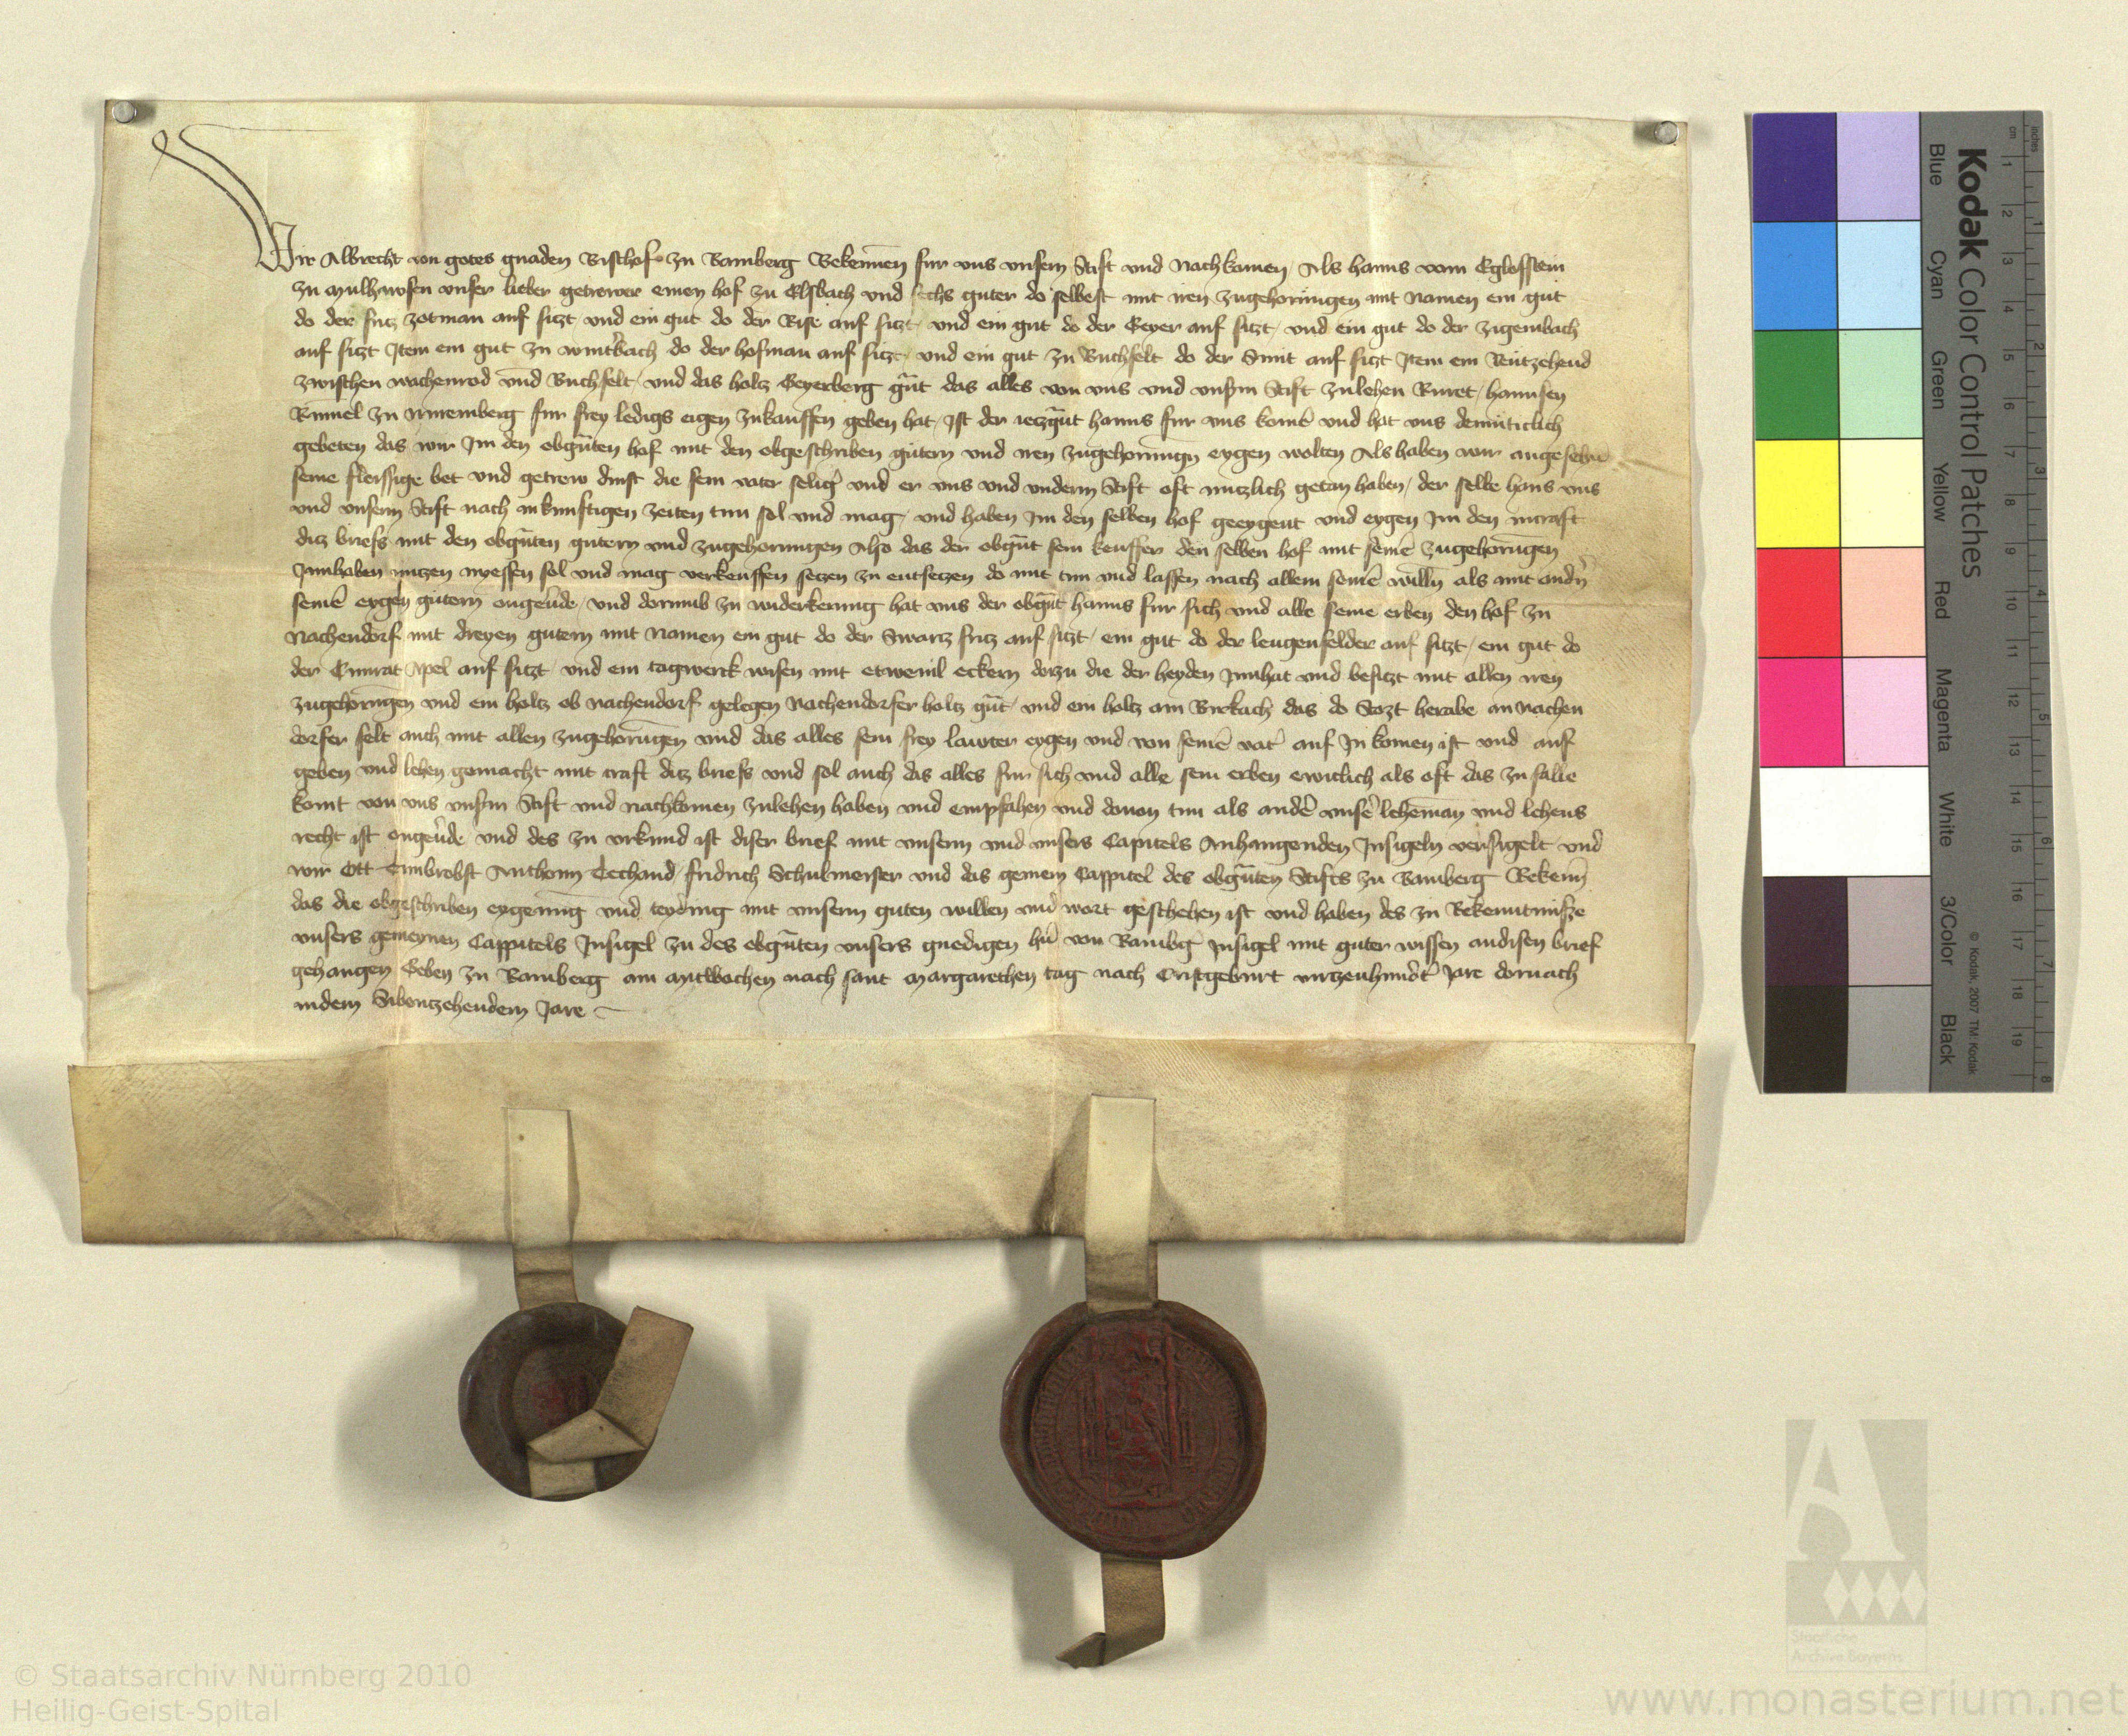 Wir Albrecht von gotes gnaden Bischof zu Bamberg Bekennen fur vns vnsern Stift vnd Nachkomen Als hanns vom Eglofstein
zu Mulhawsen vnser lieber getrewer einen hof zu Elsbach vnd sechs guter do selbest mit iren zugehorungen mit Namen ein gut
do der fritz zotman auf sitzt vnd ein gut do der Rise auf sitzt vnd ein gut do der Geyer auf sitzt vnd ein gut do der zigembach
auf sitzt Item ein gut zu wintbach do der hofman auf sitzt vnd ein gut zu Buchfelt do der Smit auf sitzt Item ein Reutzehend
zwischen wachenrod vnd Buchfelt vnd das holtz Geyerberg gnt das alles von vns vnd vnserm Stift zulehen Ruret hannsen
Rumel zu Nuremberg fur frey ledigs eigen zukauffen geben hat Ist der ietzgnt hanns fur vns kome vnd hat vns demuticlich
gebeten das wir Im den obgnten hof mit den obgeschriben gutern vnd iren zugehorungen eygen wolten Als haben wir angesehen
seine fleissige bet vnd getrew dinst die sein vater selig vnd er vns vnd vnserm Stift oft nutzlich getan haben der selbe hans vns
vnd vnserm Stift noch inkunftigen zeiten tun sol vnd mag vnd haben Im den selben hof geeygent vnd eygen Im den incraft
ditz briefs mit den obgnten gutern vnd zugehorungen Also das der obgnt sein keuffer den selben hof mit seine zugehorungen
Innhaben nutzen nyessen sol vnd mag verkeuffen setzen zu entsetzen do mit tun vnd lassen nach allem seine willn als mit andn
seine eygen gutern ongeude vnd dorumb zu widerkerung hat vns der obgnt hanns fur sich vnd alle seine erben den hof zu
Nachendorf mit dreyen gutern mit Namen ein gut do der Swartz fritz auf sitzt ein gut do der leugenfelder auf sitzt ein gut do
der Cunrat Apel auf sitzt vnd ein tagwerck wisen mit etwevil eckern dorzu die der heyden Innhat vnd besitzt mit allen iren
zugehorungen vnd ein holtz ob Nachendorf gelegen Nachendorfer holtz gnt vnd ein holtz am Birkach das do Stozt herabe an Nachen
dorfer felt auch mit allen zugehorungen vnd das alles sein frey lawter eygen vnd von seine vat auf In komen ist vnd auf
geben vnd lehen gemacht mit craft ditz briefs vnd sol auch das alles fur sich vnd alle sein erben ewiclich als oft das zu falle
komt von vns vnserm Stift vnd nachkomen zulehen haben vnd empfahen vnd dauon tun als ander vnser leheman vnd lehens
recht ist ongeude vnd des zu vrkund ist diser brief mit vnserm vnd vnsers Capitels Anhangenden Insigeln versigelt vnd
wir Ott Tumbrobst Anthonn Techand fridrich Schulmeister vnd das gemein Cappitel des obgnten Stifts zu Bamberg Bekenn
das die obgeschriben eygenung vnd teyding mit vnserm guten willen vnd wort geschehen ist vnd haben des zu Bekenntnisze
vnsers gemeynen Cappitels Insigel zu des obgnten vnsers gnedigen hn von Bambg Insigel mit guter wissen andisen brief
gehangen Geben zu Bamberg am Mitwochen nach sant Margarethen tag nach Cristgeburt virtzenhundt Jare dornach
indem Sibentzehendem Jare
Kodak Color Control Patches
Blue Cyan Green Yellow Red Magenta White 3/Color Black
© Kodak, 2007 TM: Kodak
inches 1 2 3 4 5 6 7 8
cm 1 2 3 4 5 6 7 8 9 10 11 12 13 14 15 16 17 18 19
Staatliche
Archive Bayerns
© Staatsarchiv Nürnberg 2010
Heilig-Geist-Spital
www.monasterium.net